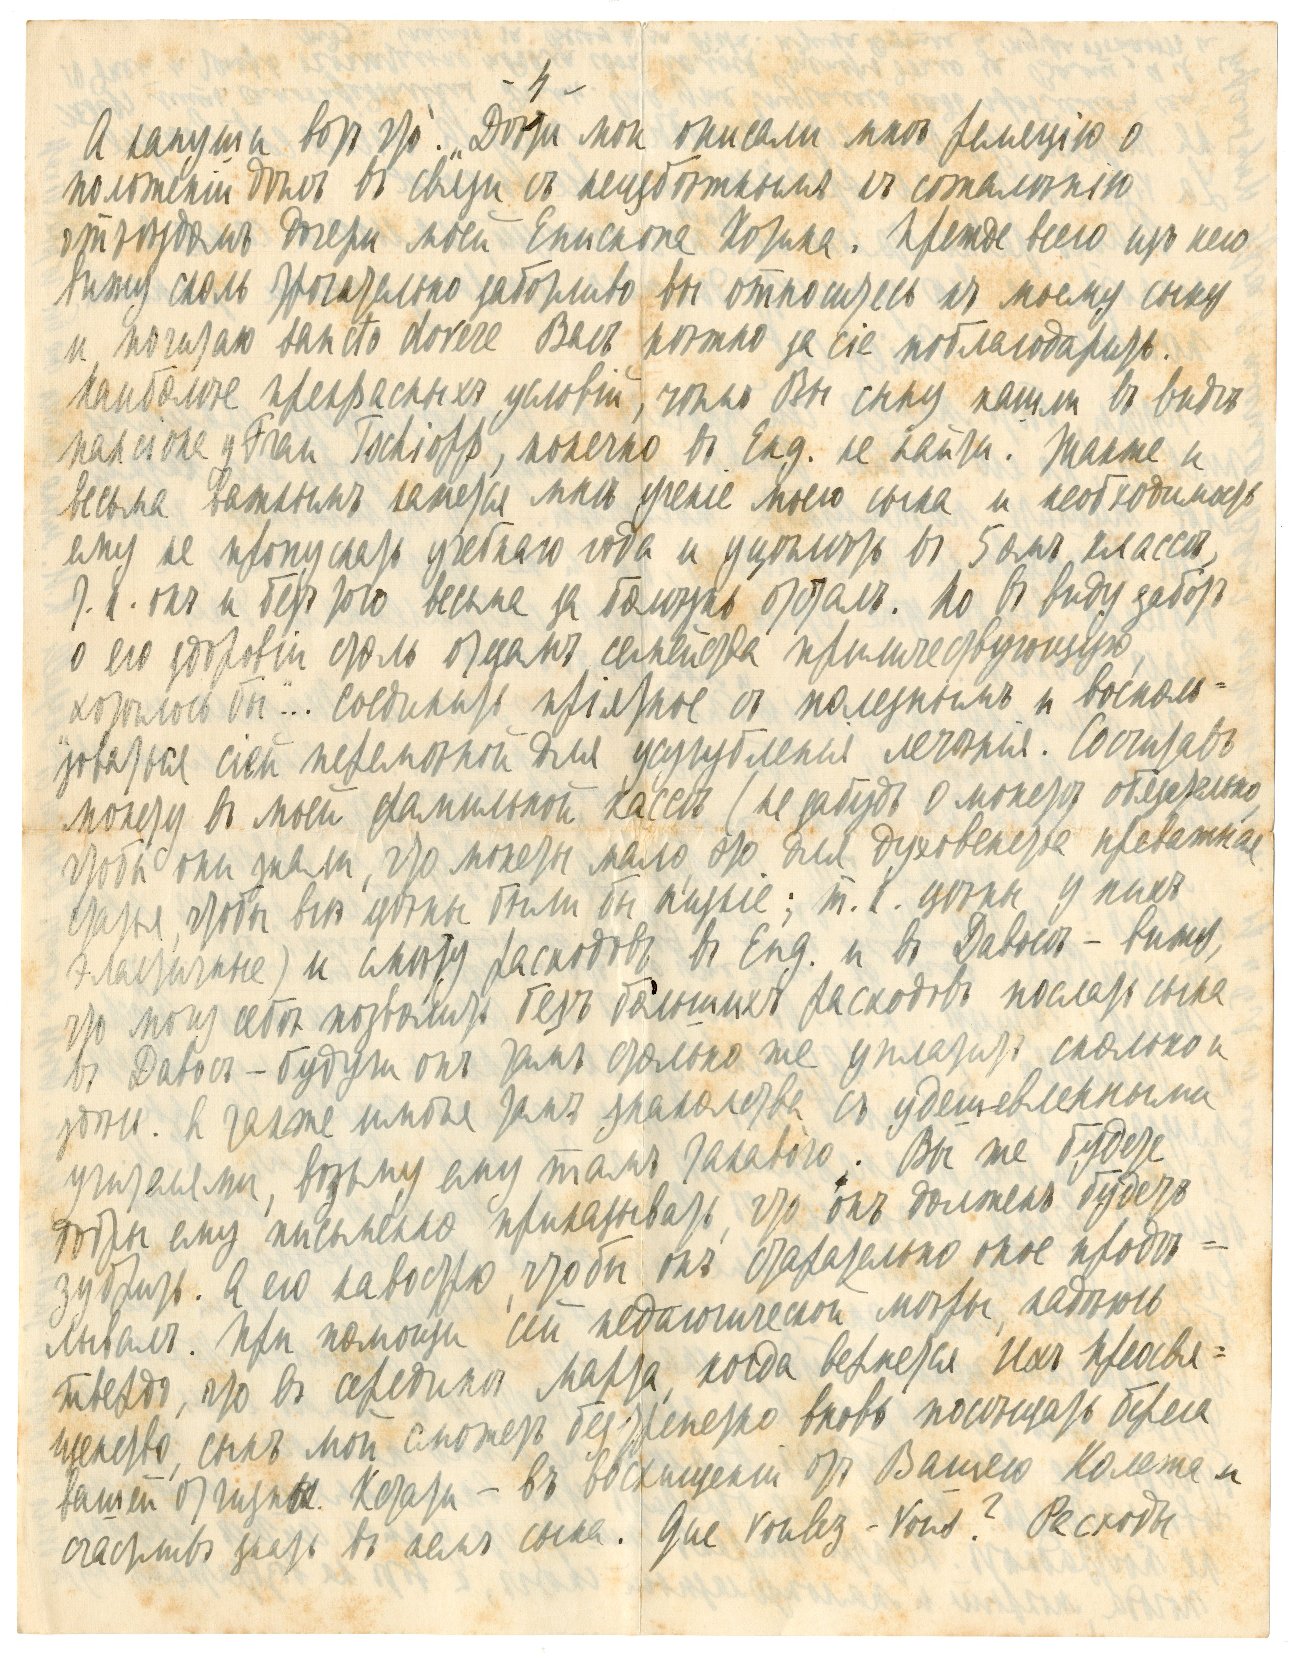 - 4 -
А напиши вотъ что: „Дѣти мои описали мнѣ реляцію о
положеніи дѣлъ въ связи съ неизбѣжнымъ къ сожалѣнію
отъѣздомъ дочери моей Епископа Хотина. Прежде всего изъ нею
вижу сколь трогательно заботливо вы относитесь къ моему сыну
и почитаю sancto dovere Васъ нѣжно за сіе поблагодарить.
Наиболѣе прекрасныхъ условій, чѣмъ Вы сыну нашли въ видѣ
пансіона у Frau Tschioff, конечно въ Eng. не найти. Также и
весьма важнымъ кажется мнѣ ученіе моего сына и необходимость
ему не пропускать учебнаго года и уцѣлѣть въ 5омъ классѣ,
т. к. онъ и безъ того весьма за болѣзнь отсталъ. Но въ виду заботъ
о его здоровіи столь отцамъ семейства приличествующихъ,
хотѣлось бы"... соединить пріятное съ полезнымъ и восполь=
зоваться сіей перемѣной для усугубленія леченія. Сосчитавъ
монету въ моей фамильной кассѣ (не забудь о монетѣ обязательно,
чтобы они знали, что монеты мало, это для духовенства преважная
статья, чтобы всѣ цѣны были бы низкіе; т. к. цѣны у нихъ
эластичные) и смѣту расходовъ въ Eng. и въ Давосѣ – вижу,
что могу себѣ позволить безъ большихъ расходовъ послать сына
въ Давосъ – будучи онъ тамъ столько же уплатитъ сколько и
здѣсь. А также имѣя тамъ знакомства съ удешевленными
учителями, возьму ему тамъ таковаго. Вы же будете
добры ему письменно приказывать, что онъ долженъ будетъ
зубрить. А его навострю, чтобы онъ старательно оное продѣ=
лывалъ. При помощи сей педагогической мѣры, надѣюсь
твердо, что въ серединѣ марта, когда вернется Ихъ Преосвя=
щенство, сынъ мой сможетъ безтрепетно вновь посѣщать берега
вашей отчизны. Кстати – въ восхищеніи отъ Вашего Колежа и
счастливъ знать въ немъ сына. Que voulez-vous? Расходы